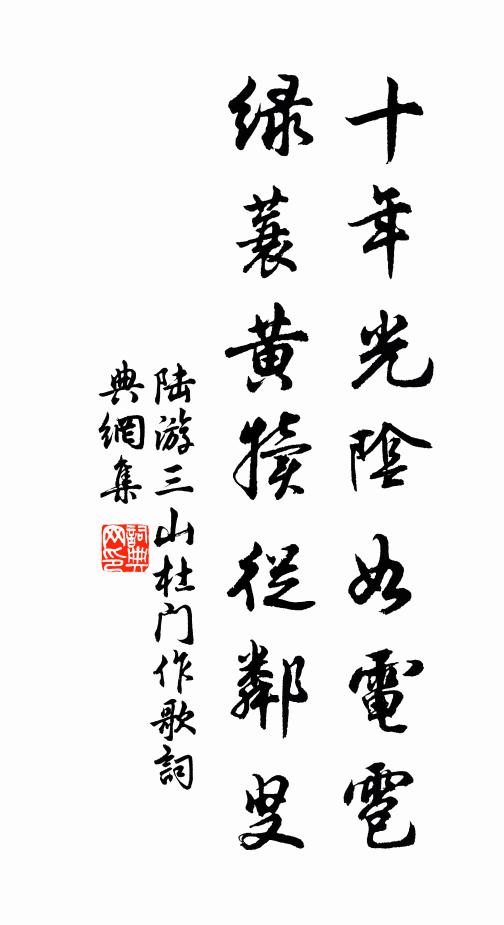 十年光陰如電雹
绿蓑黄犢從鄰叟
陆游三山杜门作歌詞
典網集
詞典网印